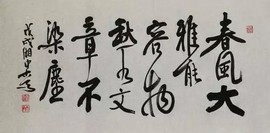 春風大
雅能
容物
秋水文
章不
染塵
戊戌